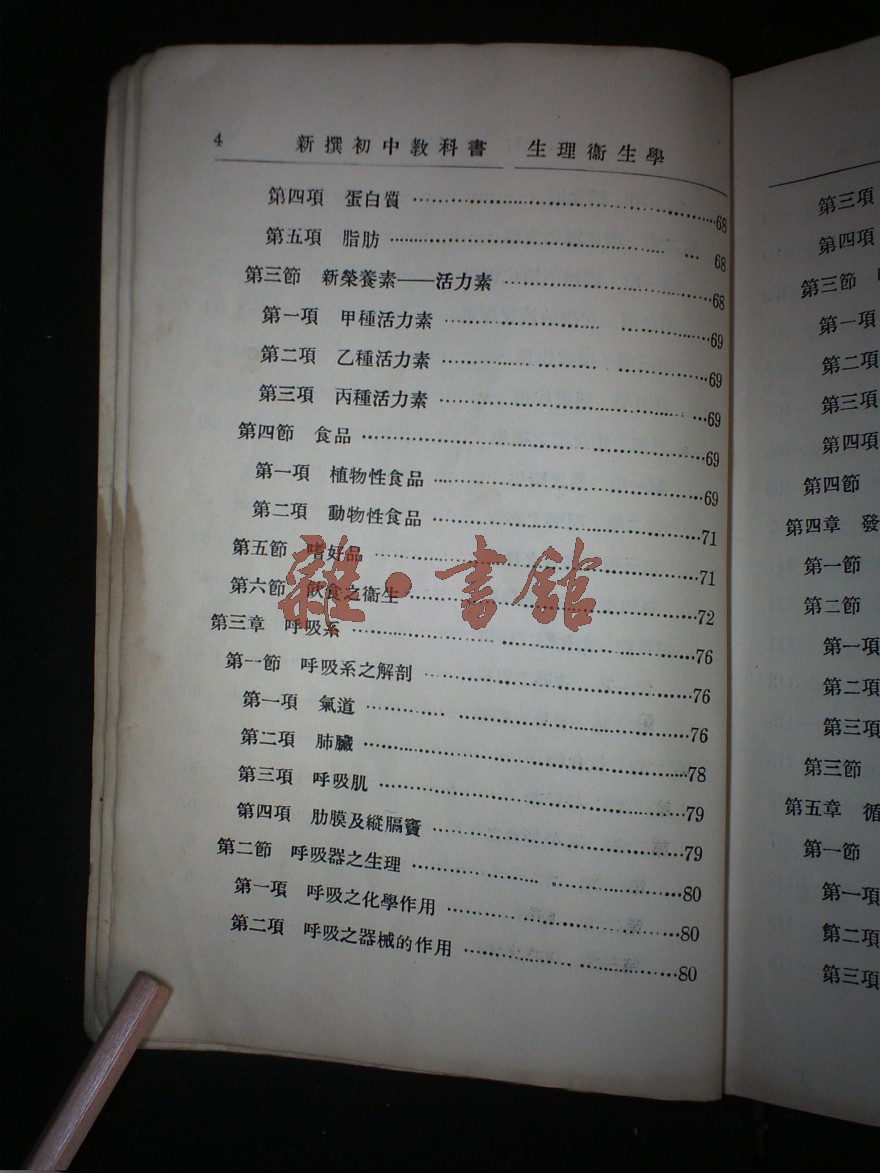 4 新撰初中教科書 生理衞生學
第四項 蛋白質 68
第五項 脂肪 68
第三節 新榮養素——活力素 68
第一項 甲種活力素 69
第二項 乙種活力素 69
第三項 丙種活力素 69
第四節 食品 69
第一項 植物性食品 69
第二項 動物性食品 71
第五節 嗜好品 71
第六節 飲食之衞生 72
第三章 呼吸系 76
第一節 呼吸系之解剖 76
第一項 氣道 76
第二項 肺臟 78
第三項 呼吸肌 79
第四項 肋膜及縱膈竇 79
第二節 呼吸器之生理 80
第一項 呼吸之化學作用 80
第二項 呼吸之器械的作用 80
雜·書館
第三項
第四項
第三節
第一項
第二項
第三項
第四項
第四節
第四章 發
第一節
第二節
第一項
第二項
第三項
第三節
第五章 循
第一節
第一項
第二項
第三項